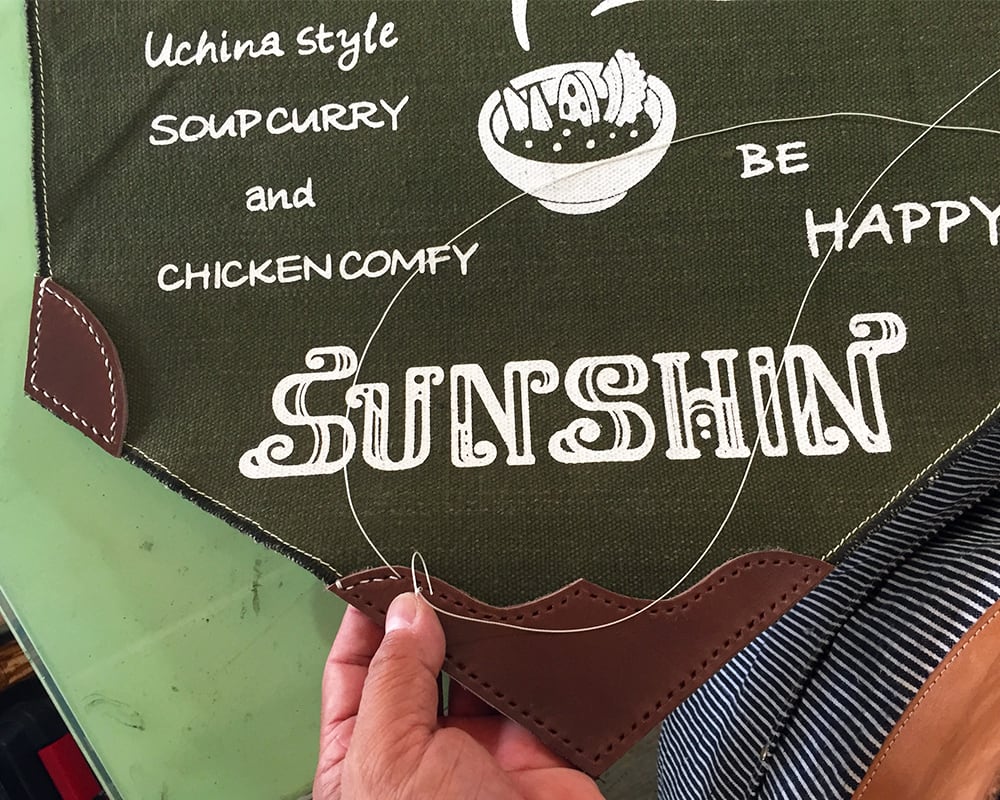 Uchina style
SOUP CURRY
and
CHICKEN COMFY
BE
HAPPY
SUNSHiN